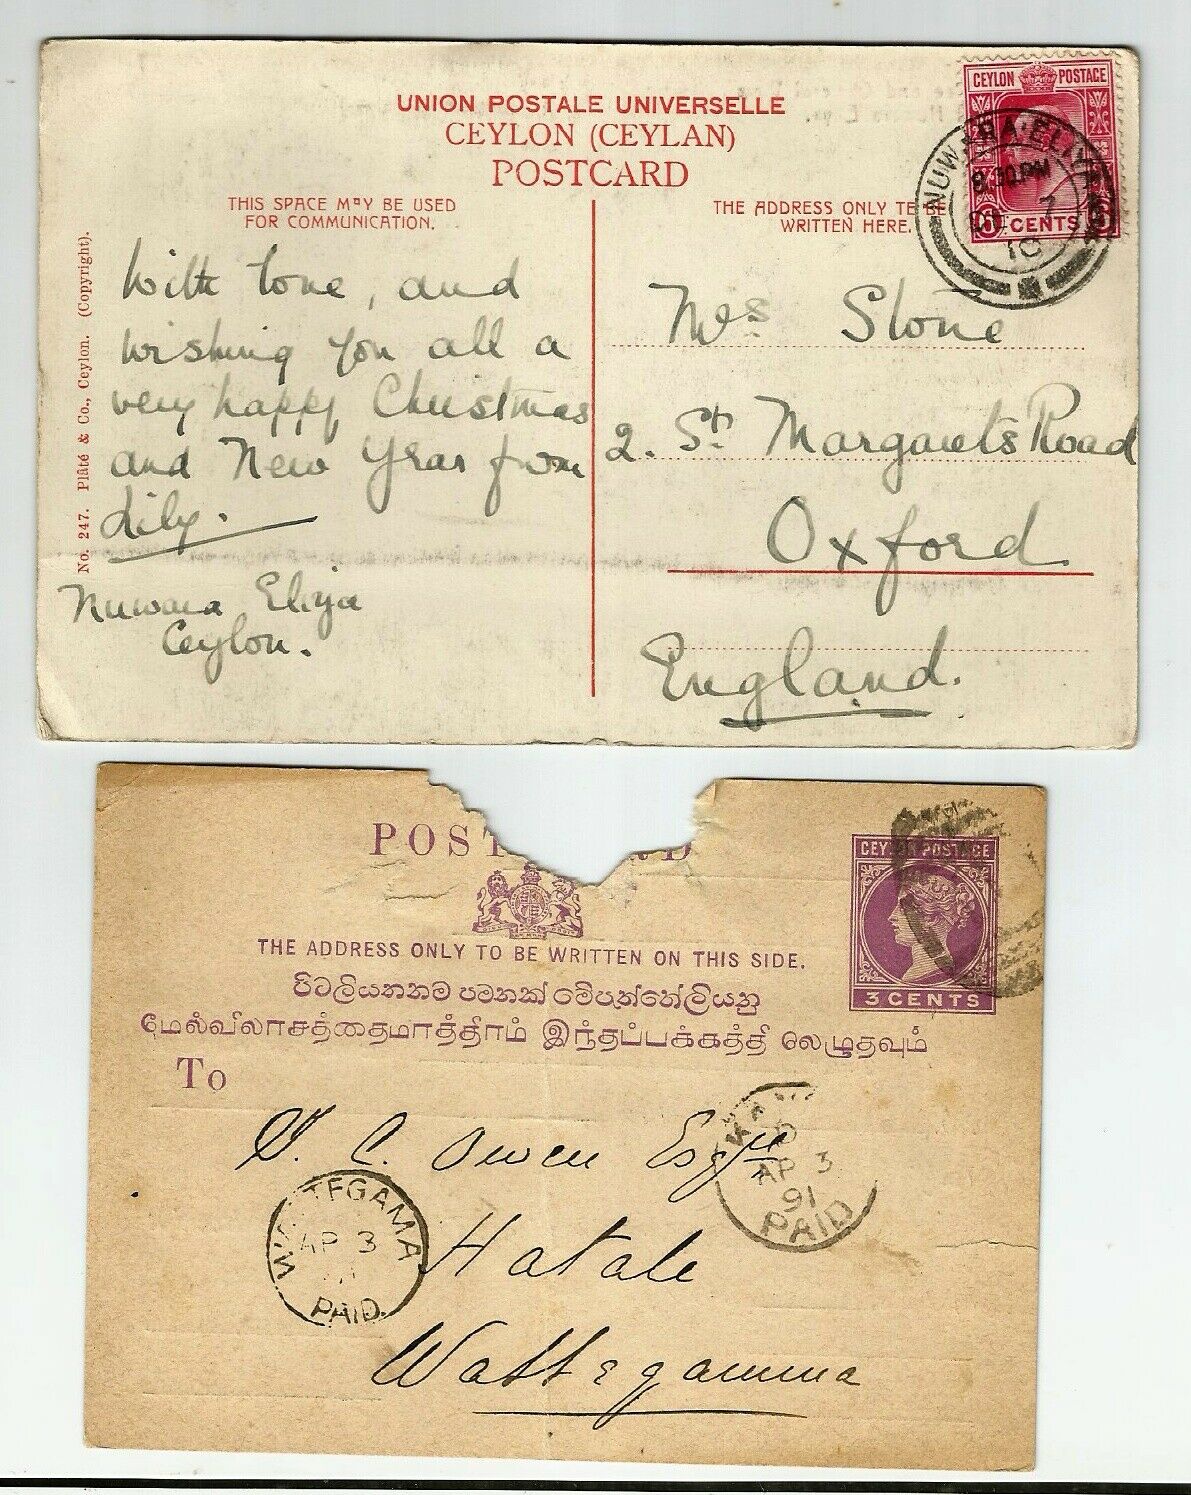 UNION POSTALE UNIVERSELLE
CEYLON (CEYLAN)
POSTCARD
THIS SPACE MAY BE USED
FOR COMMUNICATION.
THE ADDRESS ONLY TO BE
WRITTEN HERE.
CEYLON POSTAGE
6 CENTS
NUWARA-ELIYA
8.30 PM
7
10
No. 247. Plâté & Co., Ceylon. (Copyright).
With love, and
wishing you all a
very happy Christmas
and New Year from
Lily.
Nuwara Eliya
Ceylon.
Mrs Stone
2. St. Margarets Road
Oxford
England.
POST
RD
CEYLON POSTAGE
3 CENTS
THE ADDRESS ONLY TO BE WRITTEN ON THIS SIDE.
පිටලියනනම පමනක් මේපැත්තේලියනු
மேல்விலாசத்தைமாத்திரம் இந்தப்பக்கத்தி லெழுதவும்
To
C. Owen Esqre
Hatale
Wattegamma
AP 3
91
PAID
WATTEGAMA
AP 3
PAID.